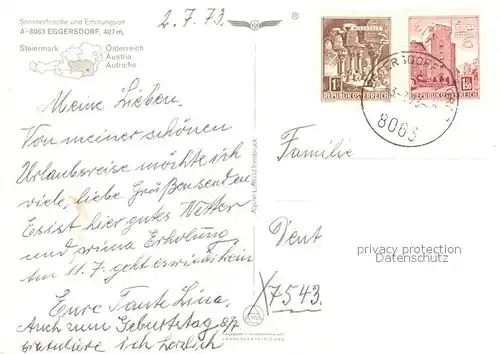 Sommerfrische und Erholungsort
A-8063 EGGERSDORF, 407 m,
Steiermark
Österreich
Austria
Autriche
2.7.73
®
Meine Lieben.
Von meiner schönen
Urlaubsreise möchte ich
viele, liebe Grüße senden
Es ist hier gutes Wetter
und prima Erholung
Am 11.7. geht es wieder heim
Eure Tante Lina
Auch zum Geburtstag 8/7
gratuliere ich herzlich
Alpine Luftbild Innsbruck
MILLSTATT
1S
REPUBLIK ÖSTERREICH
REPUBLIK ÖSTERREICH
EGGERSDORF
8063
Familie
Dent
7543
privacy protection
Datenschutz